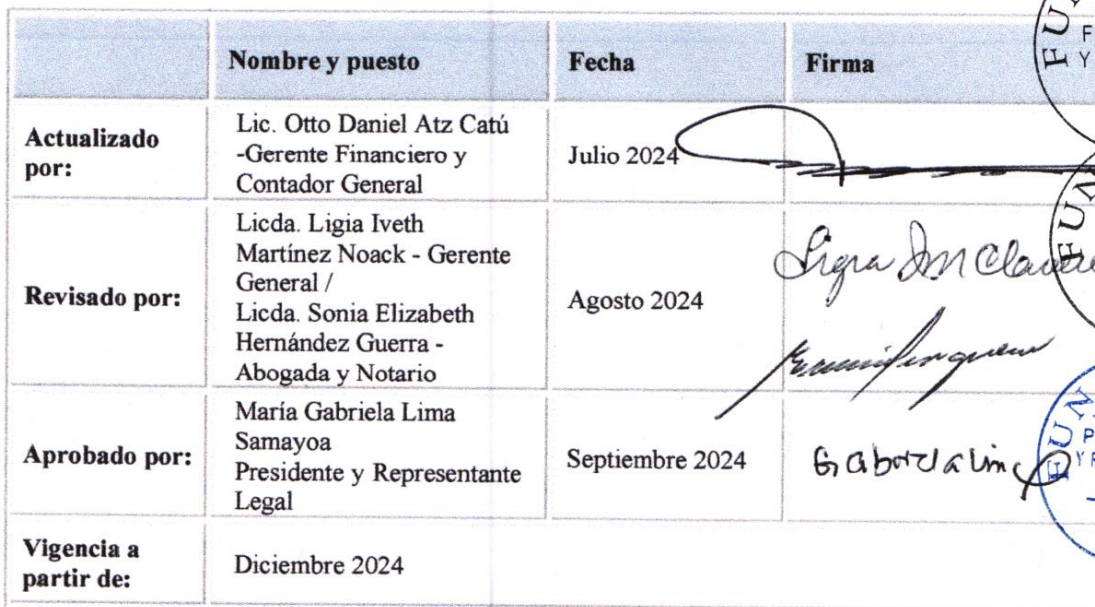 Nombre y puesto Fecha Firma
Actualizado por:
Lic. Otto Daniel Atz Catú
-Gerente Financiero y
Contador General
Julio 2024
Revisado por:
Licda. Ligia Iveth
Martínez Noack - Gerente
General /
Licda. Sonia Elizabeth
Hernández Guerra -
Abogada y Notario
Agosto 2024
Aprobado por:
María Gabriela Lima
Samayoa
Presidente y Representante
Legal
Septiembre 2024
Vigencia a
partir de:
Diciembre 2024